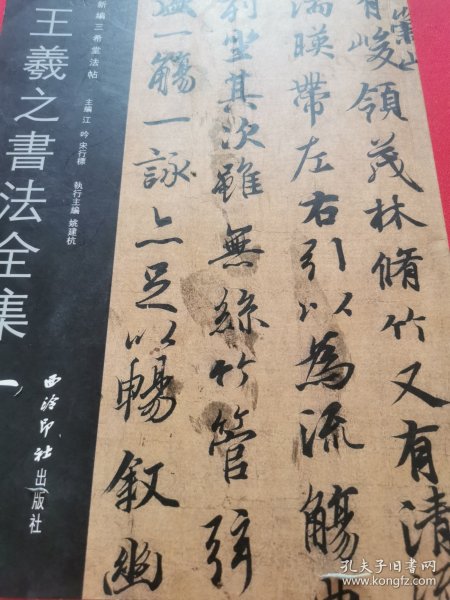 新編三希堂法帖
王羲之書法全集
主編 江吟 宋行標
執行主編 姚建杭
一
西泠印社出版社
崇山
有峻領茂林脩竹又有清流
湍暎帶左右引以為流觴曲
列坐其次雖無絲竹管弦
盛一觴一詠亦足以暢叙幽
孔夫子旧书网
www.kongfz.com